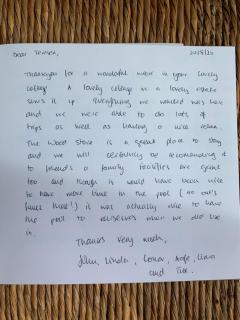 Dear Teresa,
20/8/20
Thankyou for a wonderful week in your lovely
cottage. A lovely cottage in a lovely estate
sums it up. Everything we wanted was here
and we were able to do lots of
trips as well as having a nice relax.
The Wood Store is a great place to stay
and we will certainly be recomending it
to friends & family. Facilities are great
too and though it would have been nice
to have more time in the pool (
) it was actually nice to have
the pool to ourselves when we did use
it.
Thanks very much,
John, Linda, Conor, Aoife,
and